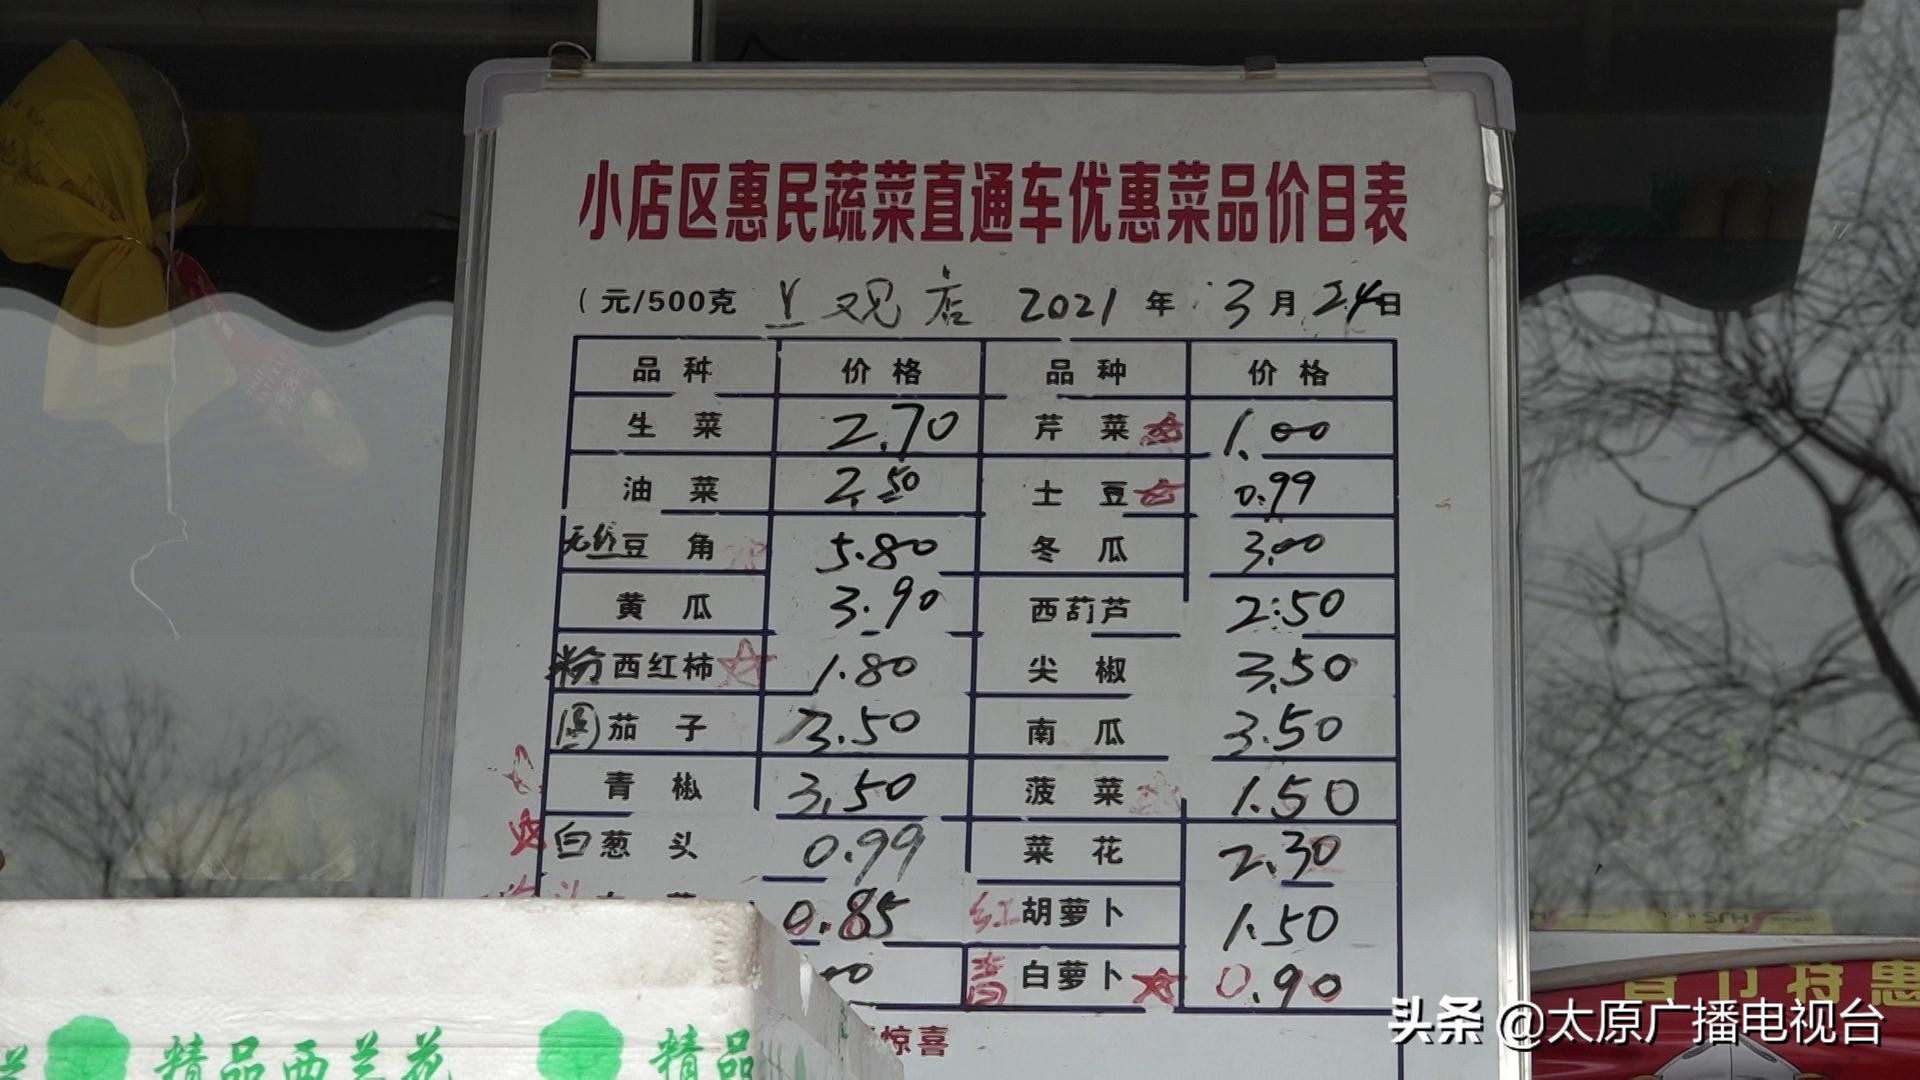 小店区惠民蔬菜直通车优惠菜品价目表
(元/500克 观店 2021年3月24日
品种 价格 品种 价格
生菜 2.70 芹菜 1.00
油菜 2.50 土豆 0.99
豆角 5.80 冬瓜 3.00
黄瓜 3.90 西葫芦 2.50
粉西红柿 1.80 尖椒 3.50
圆茄子 3.50 南瓜 3.50
青椒 3.50 菠菜 1.50
白葱头 0.99 菜花 2.30
0.85 红胡萝卜 1.50
青白萝卜 0.90
惊喜
精品西兰花
精品
特惠
头条 @太原广播电视台